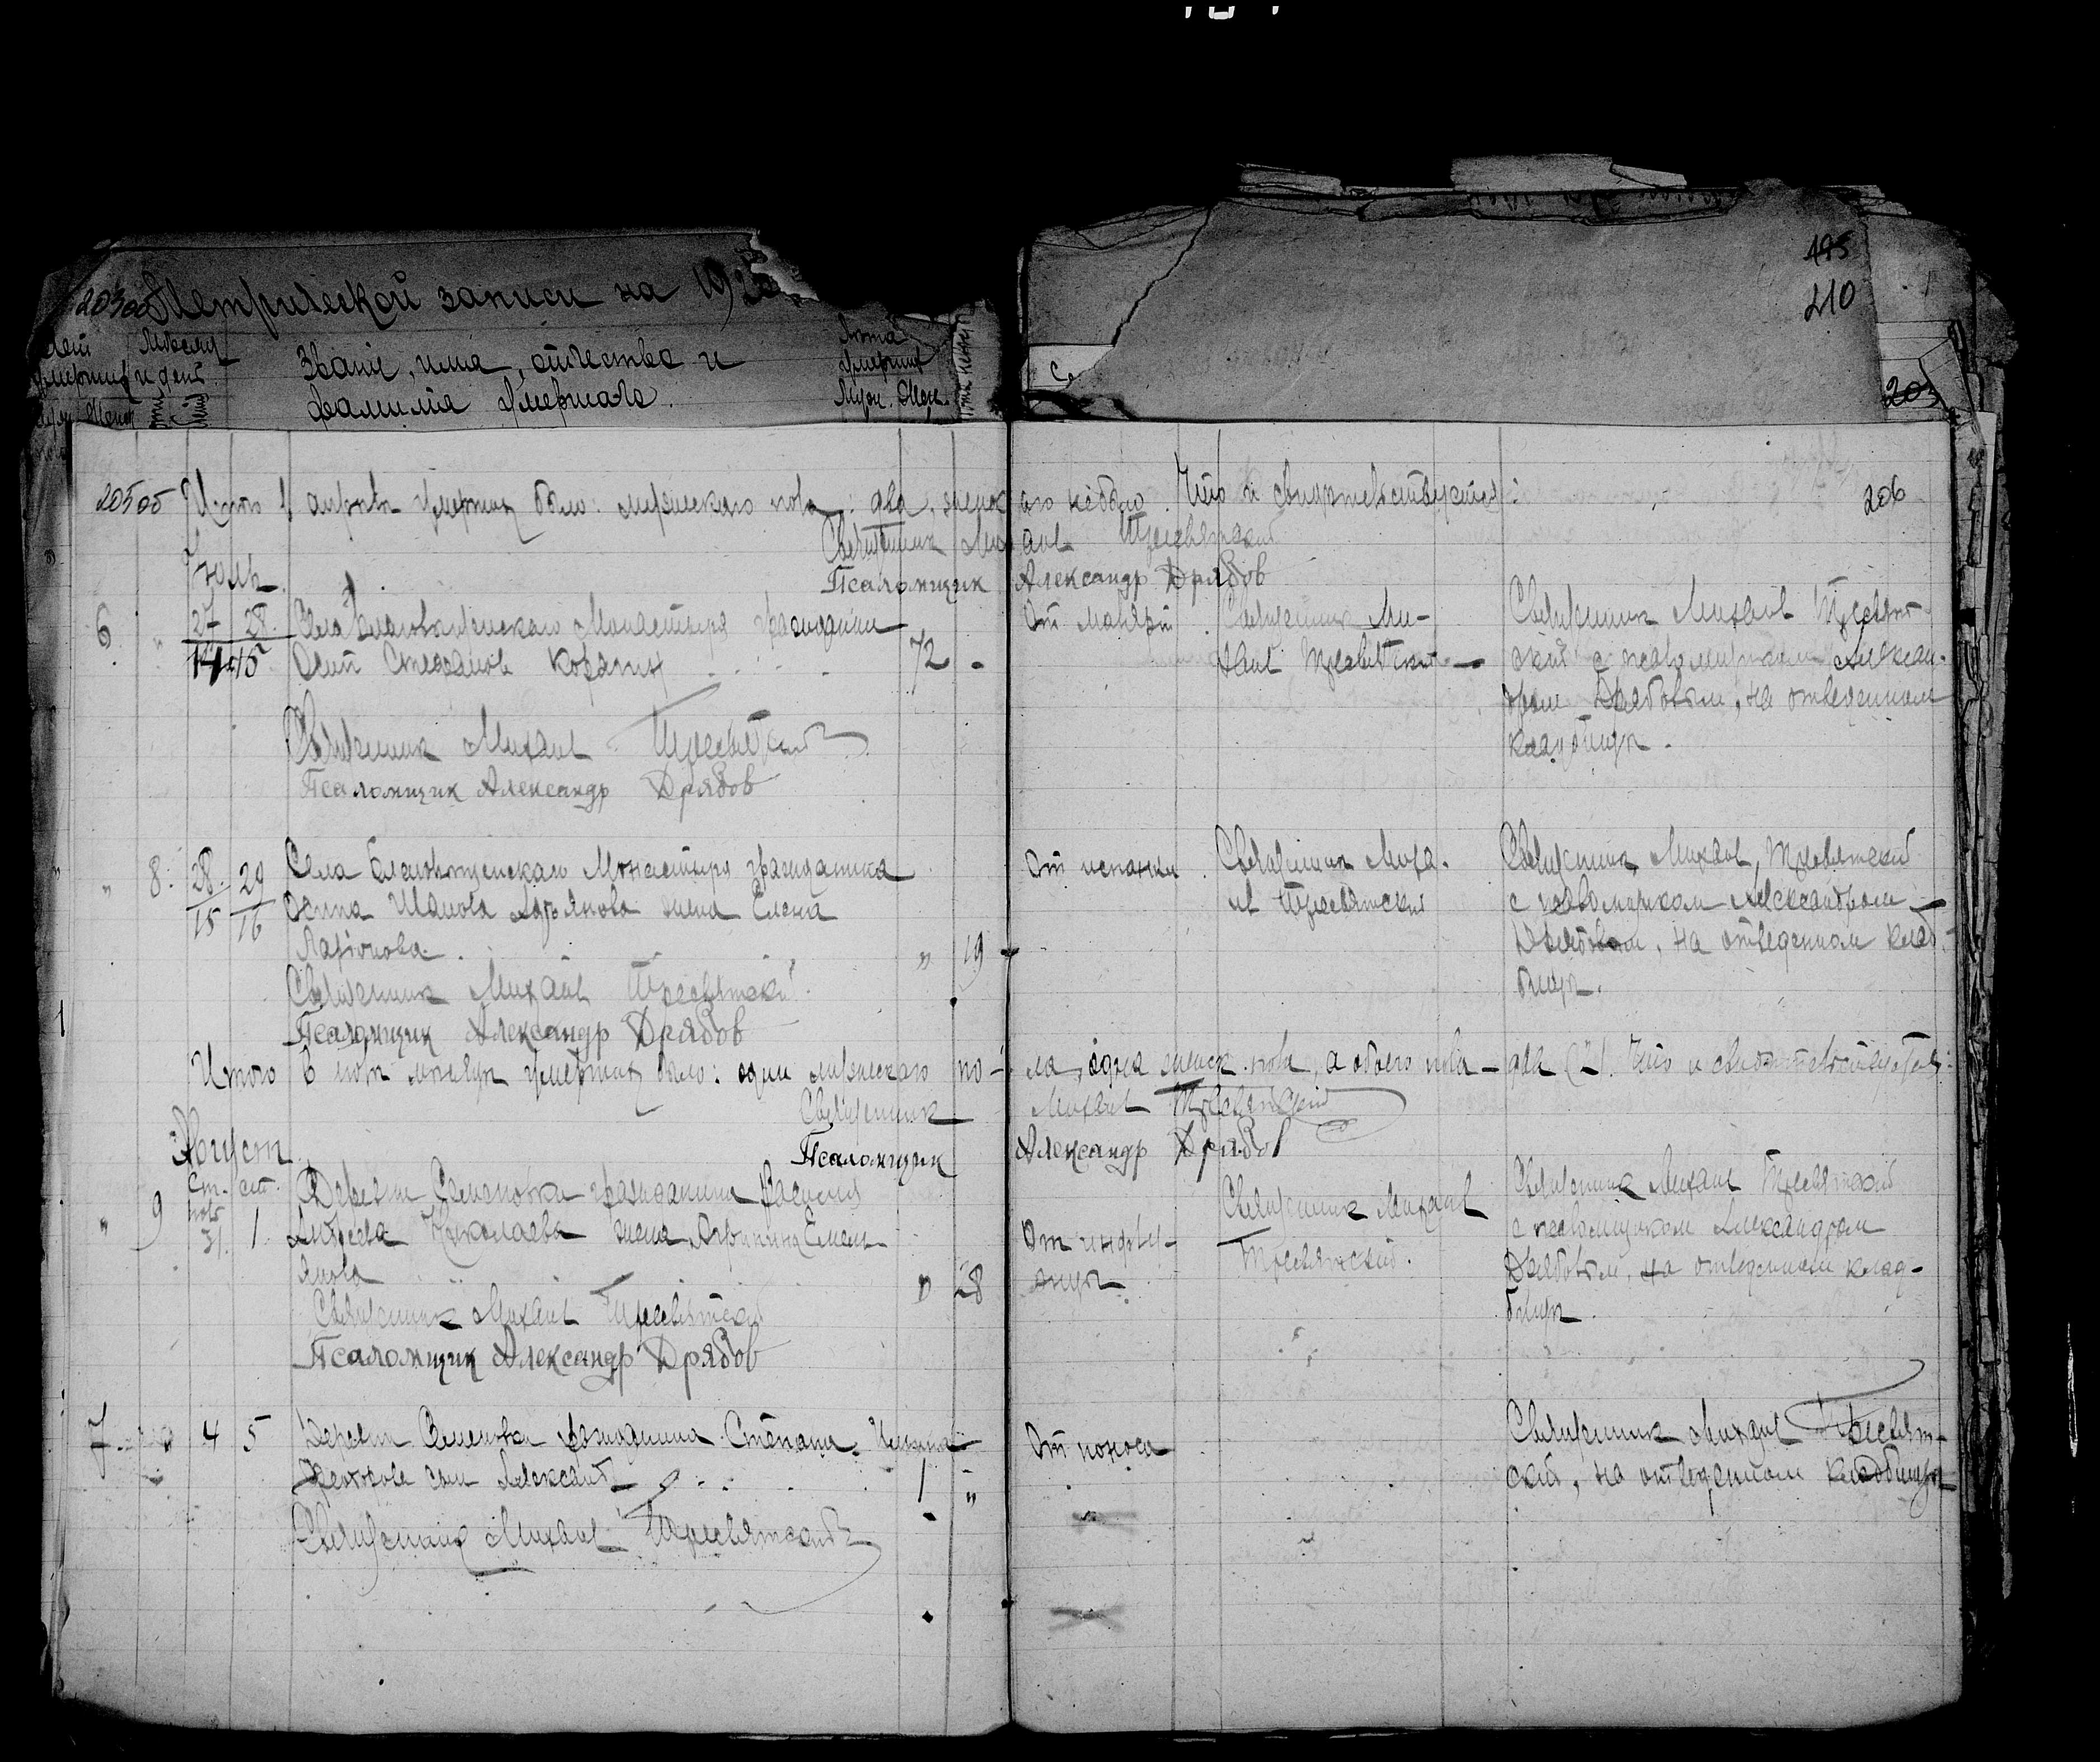 203 об Метрической записи на 192
Месяц
и день
Звание, имя, отчество и
фамилия умершаго.
Лета
умерших
Муж. Жен.
495
210
205 об Итого в апреле умерших было: мужескаго пола: два, женскаго не было. Что и свидетельствуется:
206
Священник Михаил Тресвятский
Псаломщик Александр Дрябов
Июль
6 27 28. Села Благовещенскаго Монастыря гражданин
14 15 Степанов 72 -
От малярии
Священник Ми-
хаил Тресвятский
Священник Михаил Тресвят-
ский с псаломщиком Алексан-
дром Дрябовым, на отведенном
кладбище.
Священник Михаил Тресвятский
Псаломщик Александр Дрябов
" 8. 28. 29 Села Благовещенскаго Монастыря гражданина
15 16 жена Елена
Ларионова. " 19
От испанки
Священник Миха-
ил Тресвятский
Священник Михаил Тресвятский
с псаломщиком Александром
Дрябовым, на отведенном клад-
бище.
Священник Михаил Тресвятский
Псаломщик Александр Дрябов
Итого в июле месяце умерших было: один мужескаго по-ла, одна женск. пола, а обоего пола - два (2). Что и свидетельствуется:
Священник Михаил Тресвятский
Псаломщик Александр Дрябов
Август
" 9 31. 1. Деревни Семеновки гражданина Василия
Николаева жена Емель-
янова " 28
Священник Михаил
Тресвятский.
Священник Михаил Тресвятский
с псаломщиком Александром
Дрябовым, на отведенном клад-
бище.
Священник Михаил Тресвятский
Псаломщик Александр Дрябов
7 4 5 Деревни гражданина Степана
сын 1 "
От поноса
Священник Михаил Тресвят-
ский, на отведенном кладбище
Священник Михаил Тресвятский